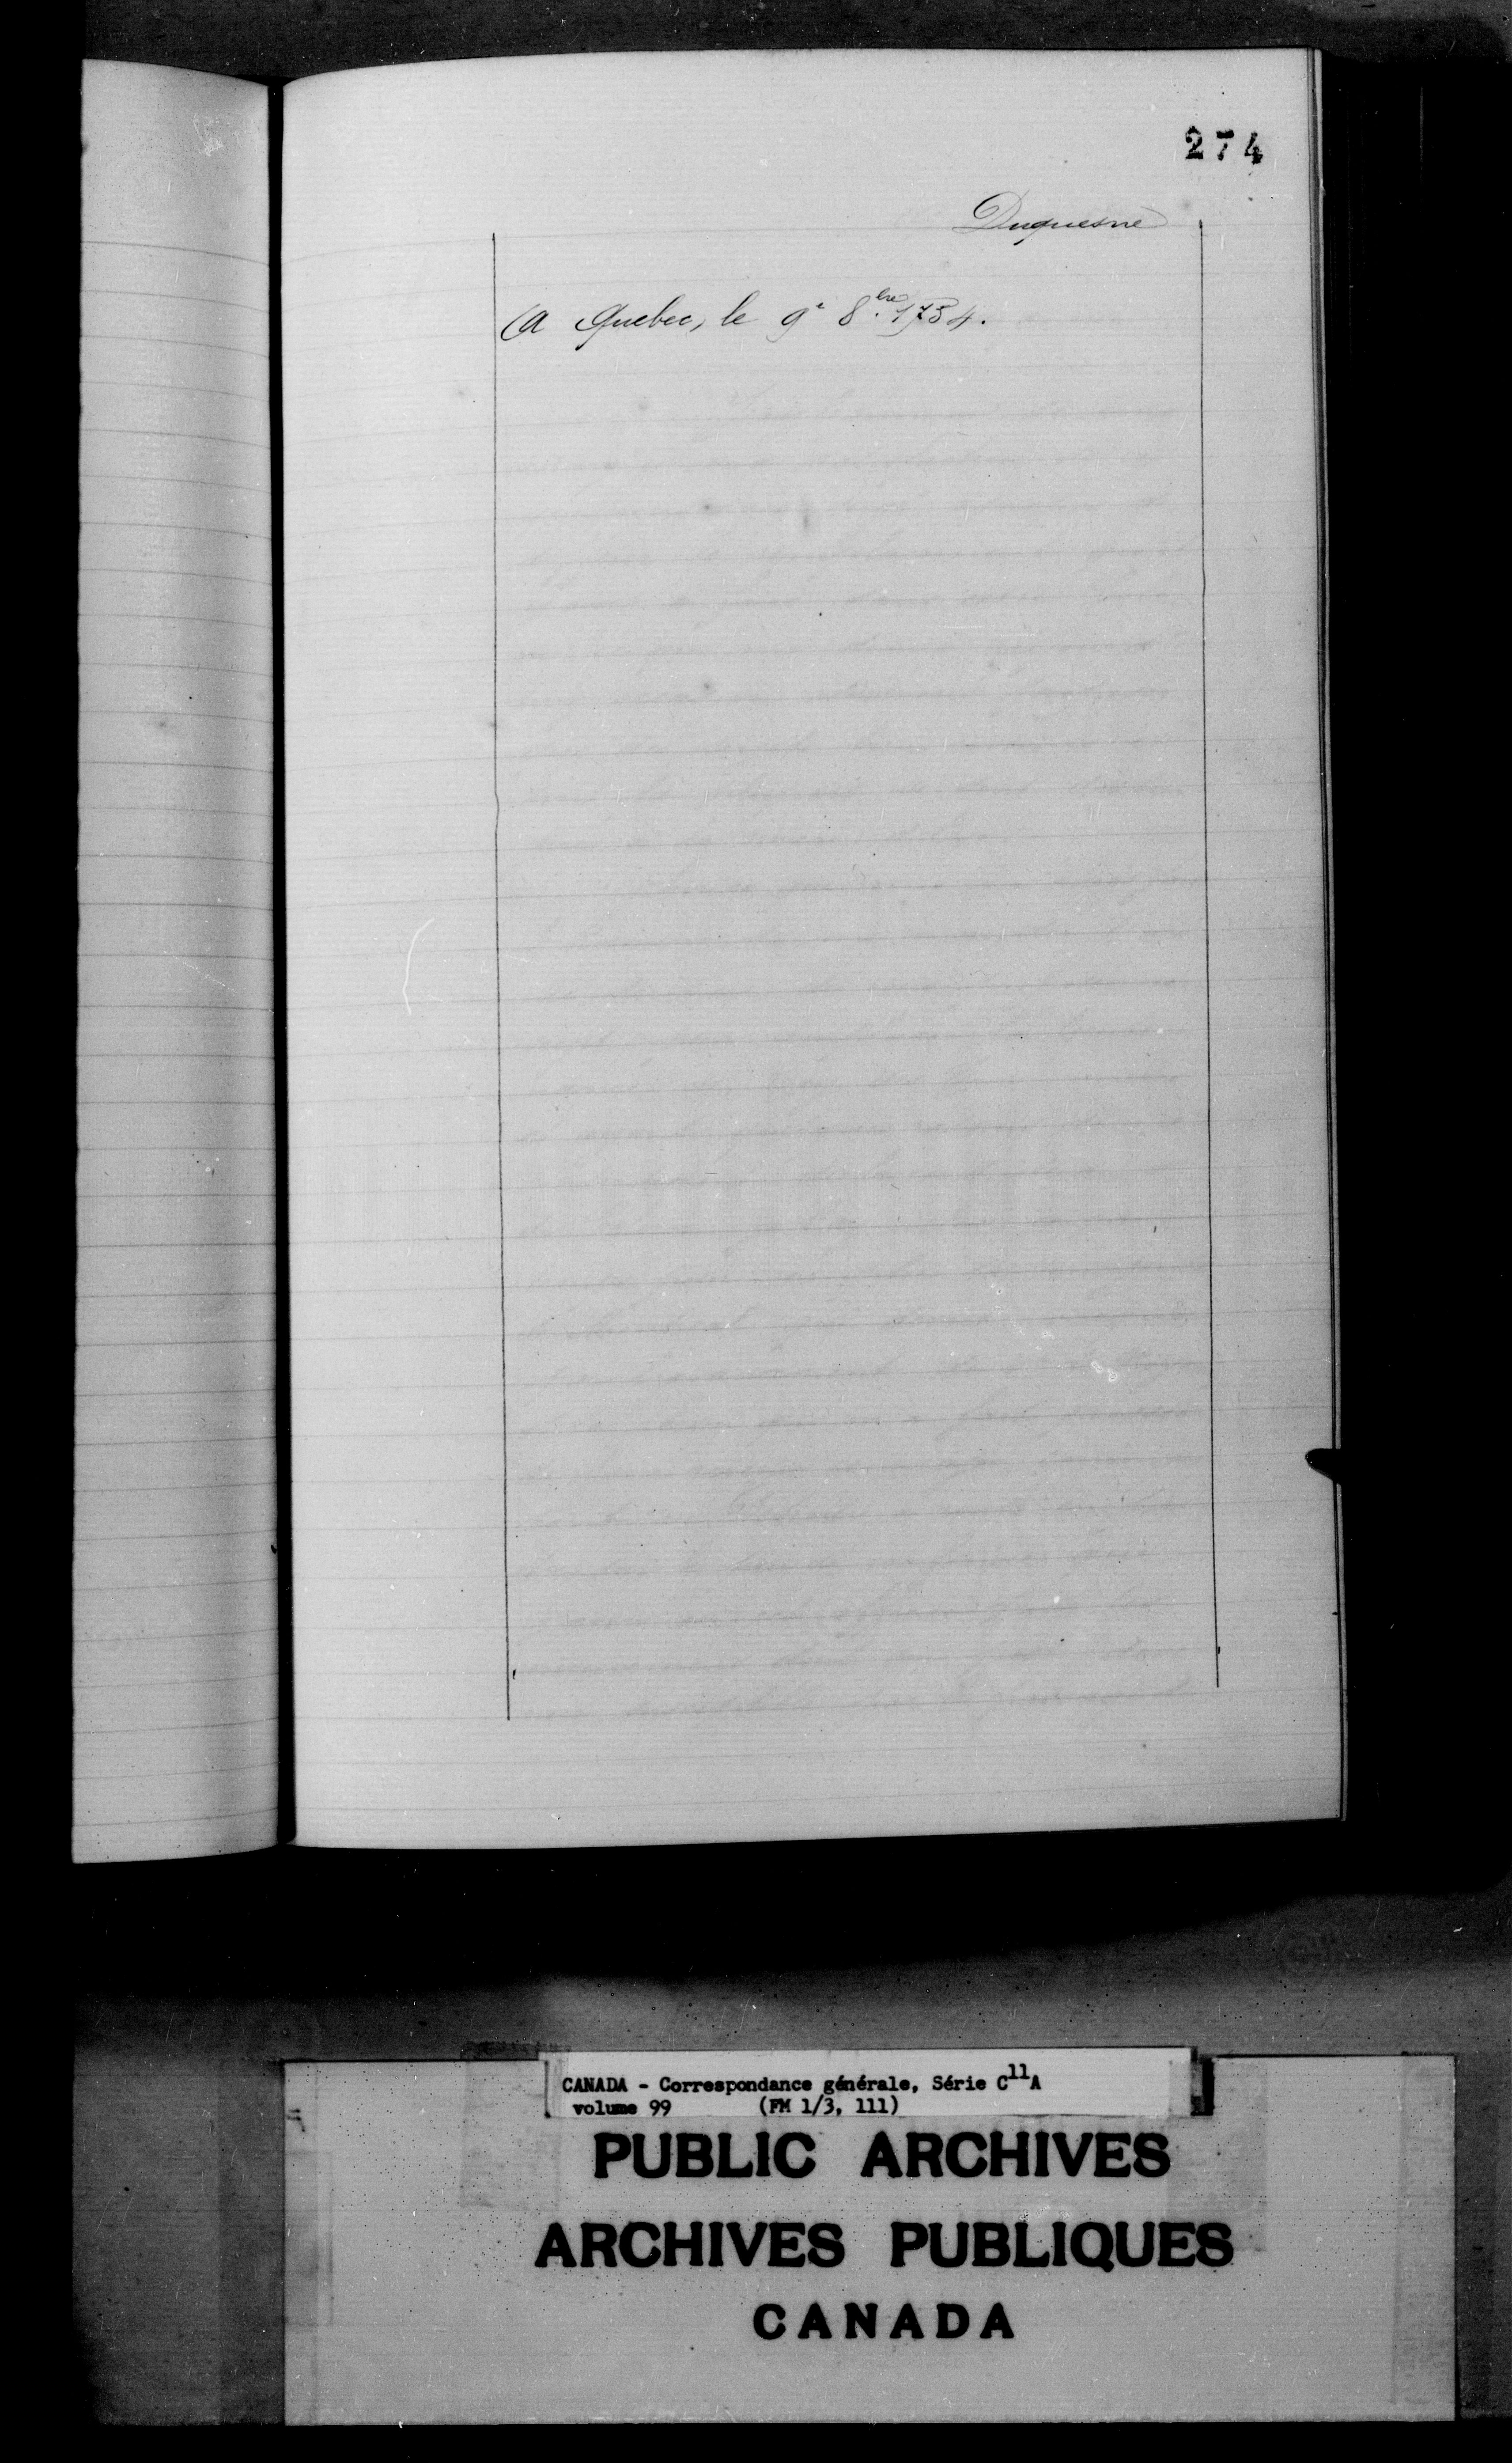 274
Duquesne
A Quebec, le 9e 8.bre 1754.
CANADA - Correspondance générale, Série C11A
volume 99 (FM 1/3, 111)
PUBLIC ARCHIVES
ARCHIVES PUBLIQUES
CANADA